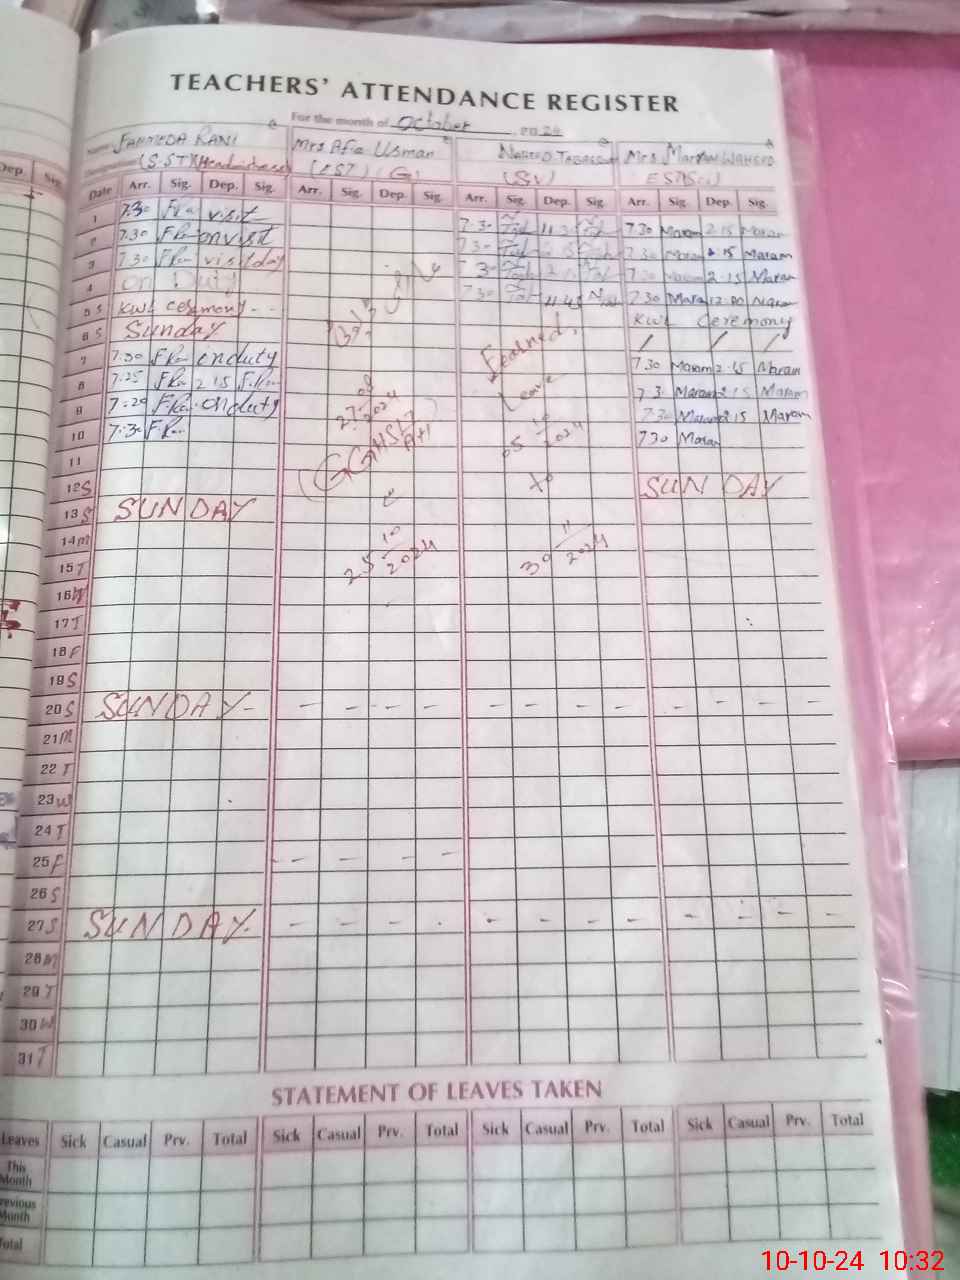 TEACHERS' ATTENDANCE REGISTER
For the month of October 2024
Name FAHMEDA RANI Mrs Afia Usman NAHEED TABASSUM Mrs. MARYAM WAHEED
(S.ST)(Headmistress) (EST) (G) (SV) EST(Sci)
Dep. Sig.
Date Arr. Sig. Dep. Sig. Arr. Sig. Dep. Sig. Arr. Sig. Dep. Sig. Arr. Sig. Dep. Sig.
1 7.30 FRa visit 7.30 7.30 Maram 2.15 Maram
2 7.30 FRa on visit 7.30 7.30 Maram 2.15 Maram
3 7.30 FRa visit day 7.30 7.30 Maram 2.15 Maram
4 on Duty 7.30 11.45 7.30 Maram 12.00 Maram
5 S KWL ceremony - - KWL Ceremony
6 S Sunday / / /
7 7.30 FRa on duty 7.30 Maram 2.15 Maram
8 7:25 FRa 2.15 FRa 7.30 Maram 2.15 Maram
9 7:29 FRa on duty 7.30 Maram 2.15 Maram
10 7:30 FRa 7.30 Maram
11
12 S SUNDAY
13 S SUNDAY
14 M
15 T
16 W
17 T
18 F
19 S
20 S SUNDAY - - - - - - - - - - - - -
21 M
22 T
23 W
24 T
25 F - - - -
26 S
27 S SUNDAY - - - . - - - - - - - -
28 M
29 T
30 W
31 T
27 08/2024
25 10/2024
Earned
Leave
05 10/2024
to
30 11/2024
STATEMENT OF LEAVES TAKEN
Leaves Sick Casual Prv. Total Sick Casual Prv. Total Sick Casual Prv. Total Sick Casual Prv. Total
This Month
Previous Month
Total
10-10-24 10:32